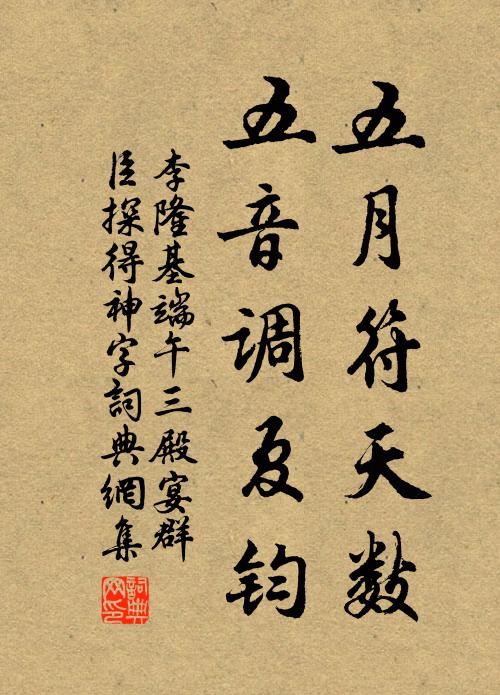 五月符天數
五音調夏鈞
李隆基端午三殿宴群
臣探得神字詞典網集
詞典网印